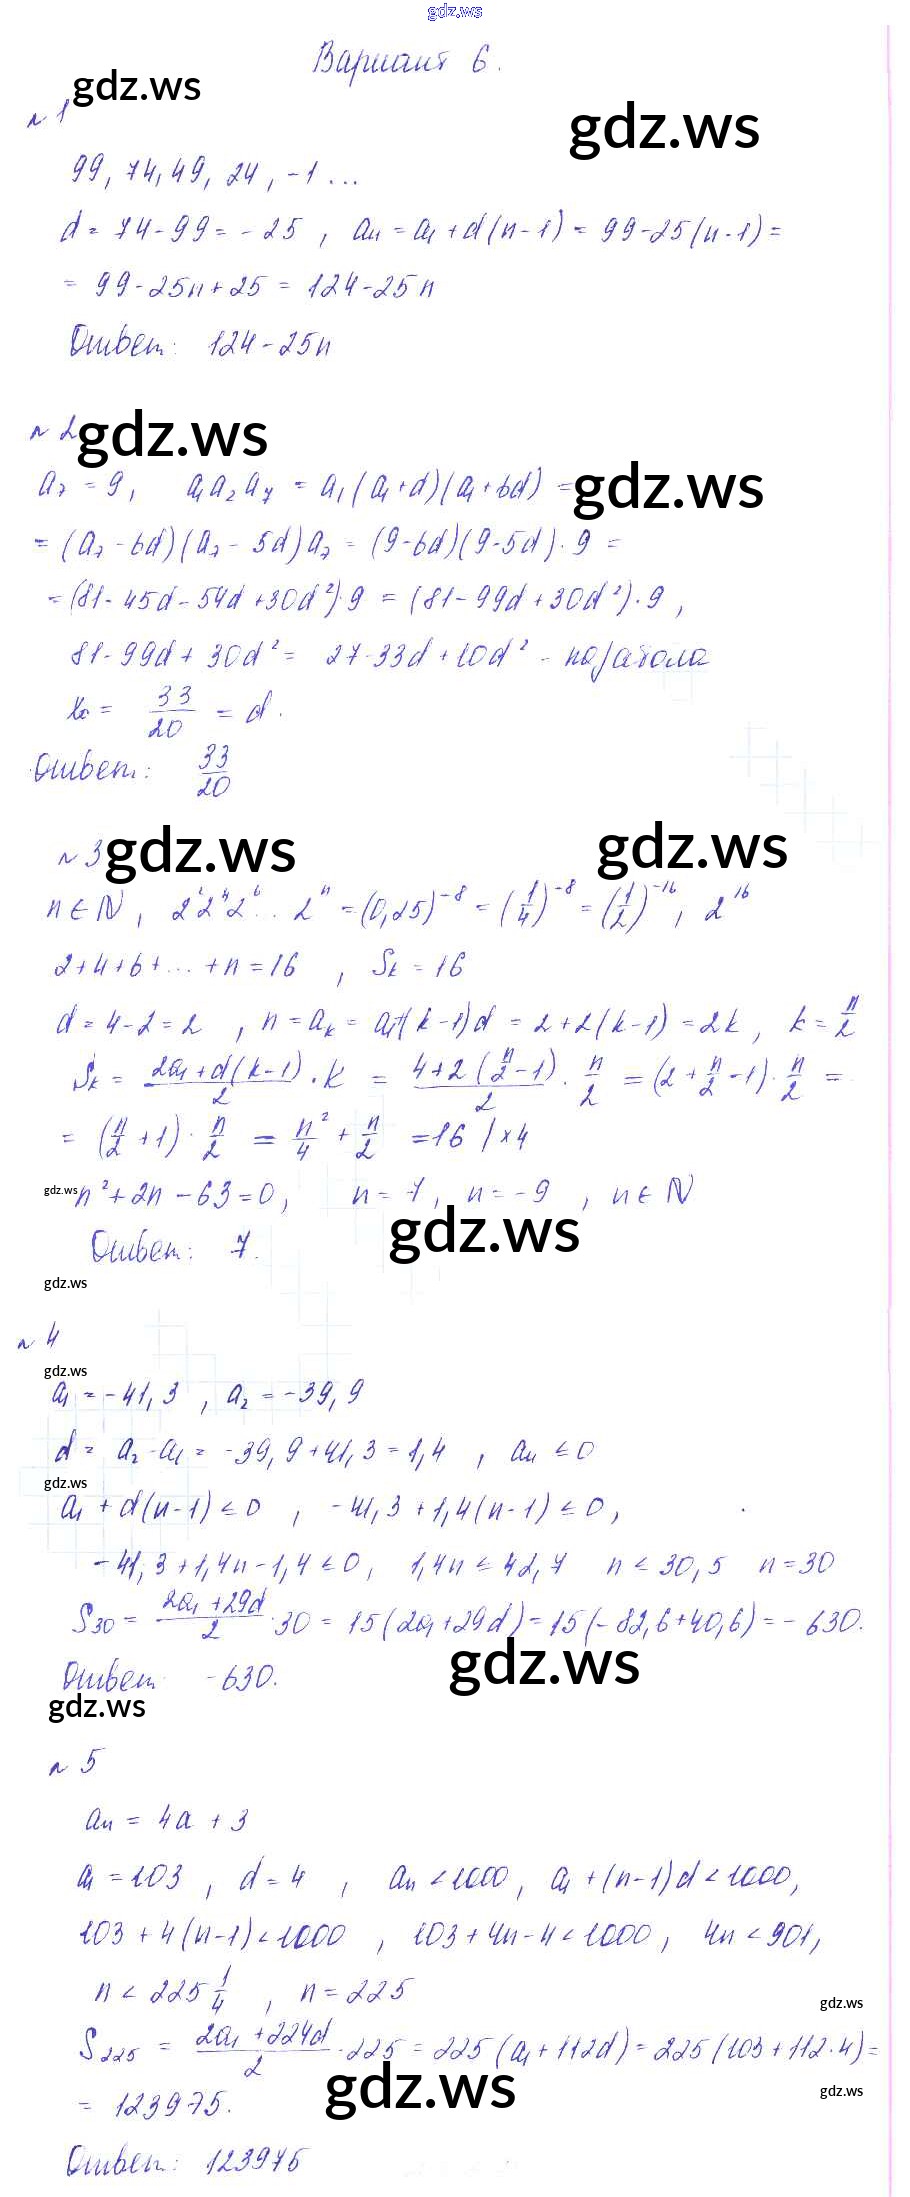 gdz.ws
Вариант 6.
gdz.ws
№ 1
gdz.ws
99, 74, 49, 24, -1 ...
d = 74 - 99 = - 25 , aₙ = a₁ + d(n-1) = 99 - 25(n-1) =
= 99 - 25n + 25 = 124 - 25n
Ответ: 124 - 25n
№ 2
gdz.ws
a₇ = 9, a₁ a₂ a₇ = a₁(a₁+d)(a₁+6d) =
gdz.ws
= (a₇ - 6d)(a₇ - 5d) a₇ = (9-6d)(9-5d)·9 =
= (81 - 45d - 54d + 30d²)·9 = (81 - 99d + 30d²)·9 ,
81 - 99d + 30d² = 27 - 33d + 10d² - парабола
x₀ = 33/20 = d.
Ответ: 33/20
№ 3
gdz.ws
gdz.ws
n ∈ N , 2² 2⁴ 2⁶ ... 2ⁿ = (0,25)⁻⁸ = (1/4)⁻⁸ = (1/2)⁻¹⁶ , 2¹⁶
2+4+6+...+n = 16 , Sₖ = 16
d = 4-2 = 2 , n = aₖ = a₁+(k-1)d = 2+2(k-1) = 2k , k = n/2
Sₖ = (2a₁+d(k-1))/2 · k = (4+2(n/2-1))/2 · n/2 = (2+n/2-1)· n/2 =
= (n/2+1)· n/2 = n²/4 + n/2 = 16 /×4
gdz.ws
n² + 2n - 63 = 0 , n = 7 , n = -9 , n ∈ N
gdz.ws
Ответ: 7.
gdz.ws
№ 4
gdz.ws
a₁ = -41,3 , a₂ = -39,9
d = a₂ - a₁ = -39,9 + 41,3 = 1,4 , aₙ ≤ 0
gdz.ws
a₁ + d(n-1) ≤ 0 , -41,3 + 1,4(n-1) ≤ 0 ,
-41,3 + 1,4n - 1,4 ≤ 0 , 1,4n ≤ 42,7 n ≤ 30,5 n = 30
S₃₀ = (2a₁+29d)/2 · 30 = 15(2a₁+29d) = 15(-82,6+40,6) = - 630.
gdz.ws
Ответ -630.
gdz.ws
№ 5
aₙ = 4a + 3
a₁ = 103 , d = 4 , aₙ < 1000 , a₁ + (n-1)d < 1000,
103 + 4(n-1) < 1000 , 103 + 4n - 4 < 1000 , 4n < 901,
n < 225 1/4 , n = 225
gdz.ws
S₂₂₅ = (2a₁+224d)/2 · 225 = 225(a₁+112d) = 225(103+112·4) =
gdz.ws
gdz.ws
= 123975.
Ответ: 123975